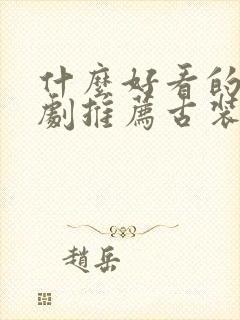 什麼好看的
劇推薦古裝
趙岳